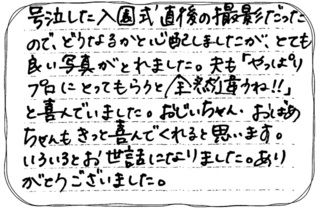 号泣した入園式直後の撮影だった
ので、どうなるかと心配しましたが、とても
良い写真がとれました。夫も「やっぱり
プロにとってもらうと全然違うね!!」
と喜んでいました。おじいちゃん・おばあ
ちゃんもきっと喜んでくれると思います。
いろいろとお世話になりました。あり
がとうございました。